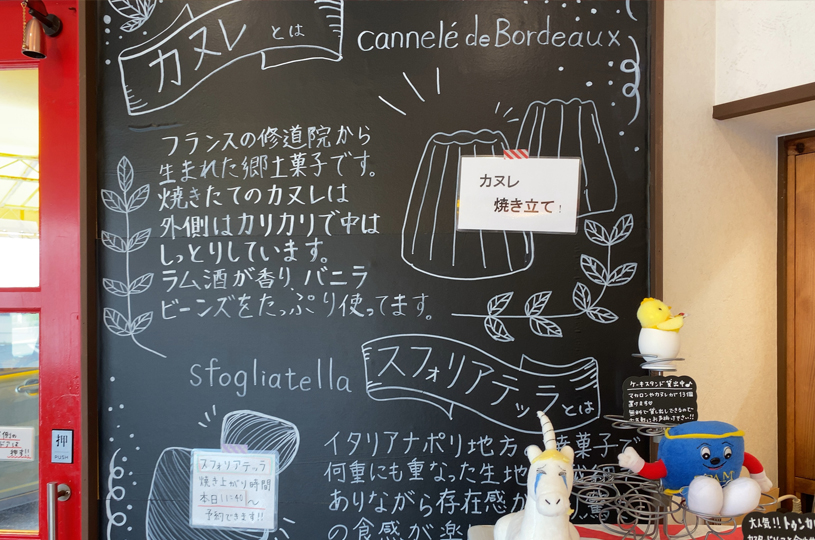 カヌレ とは
cannelé de Bordeaux
フランスの修道院から
生まれた郷土菓子です。
焼きたてのカヌレは
外側はカリカリで中は
しっとりしています。
ラム酒が香り、バニラ
ビーンズをたっぷり使ってます。
カヌレ
焼き立て!
sfogliatella
スフォリアテッラとは
イタリアナポリ地方 菓子で
何重にも重なった生地
ありながら存在感が
の食感が楽し
スフォリアテッラ
焼き上がり時間
本日11:40〜
予約できます!!
ケーキスタンド貸出中♪
マカロンやカヌレが
押
PUSH
押す!!
大人気!!トゥンカロン